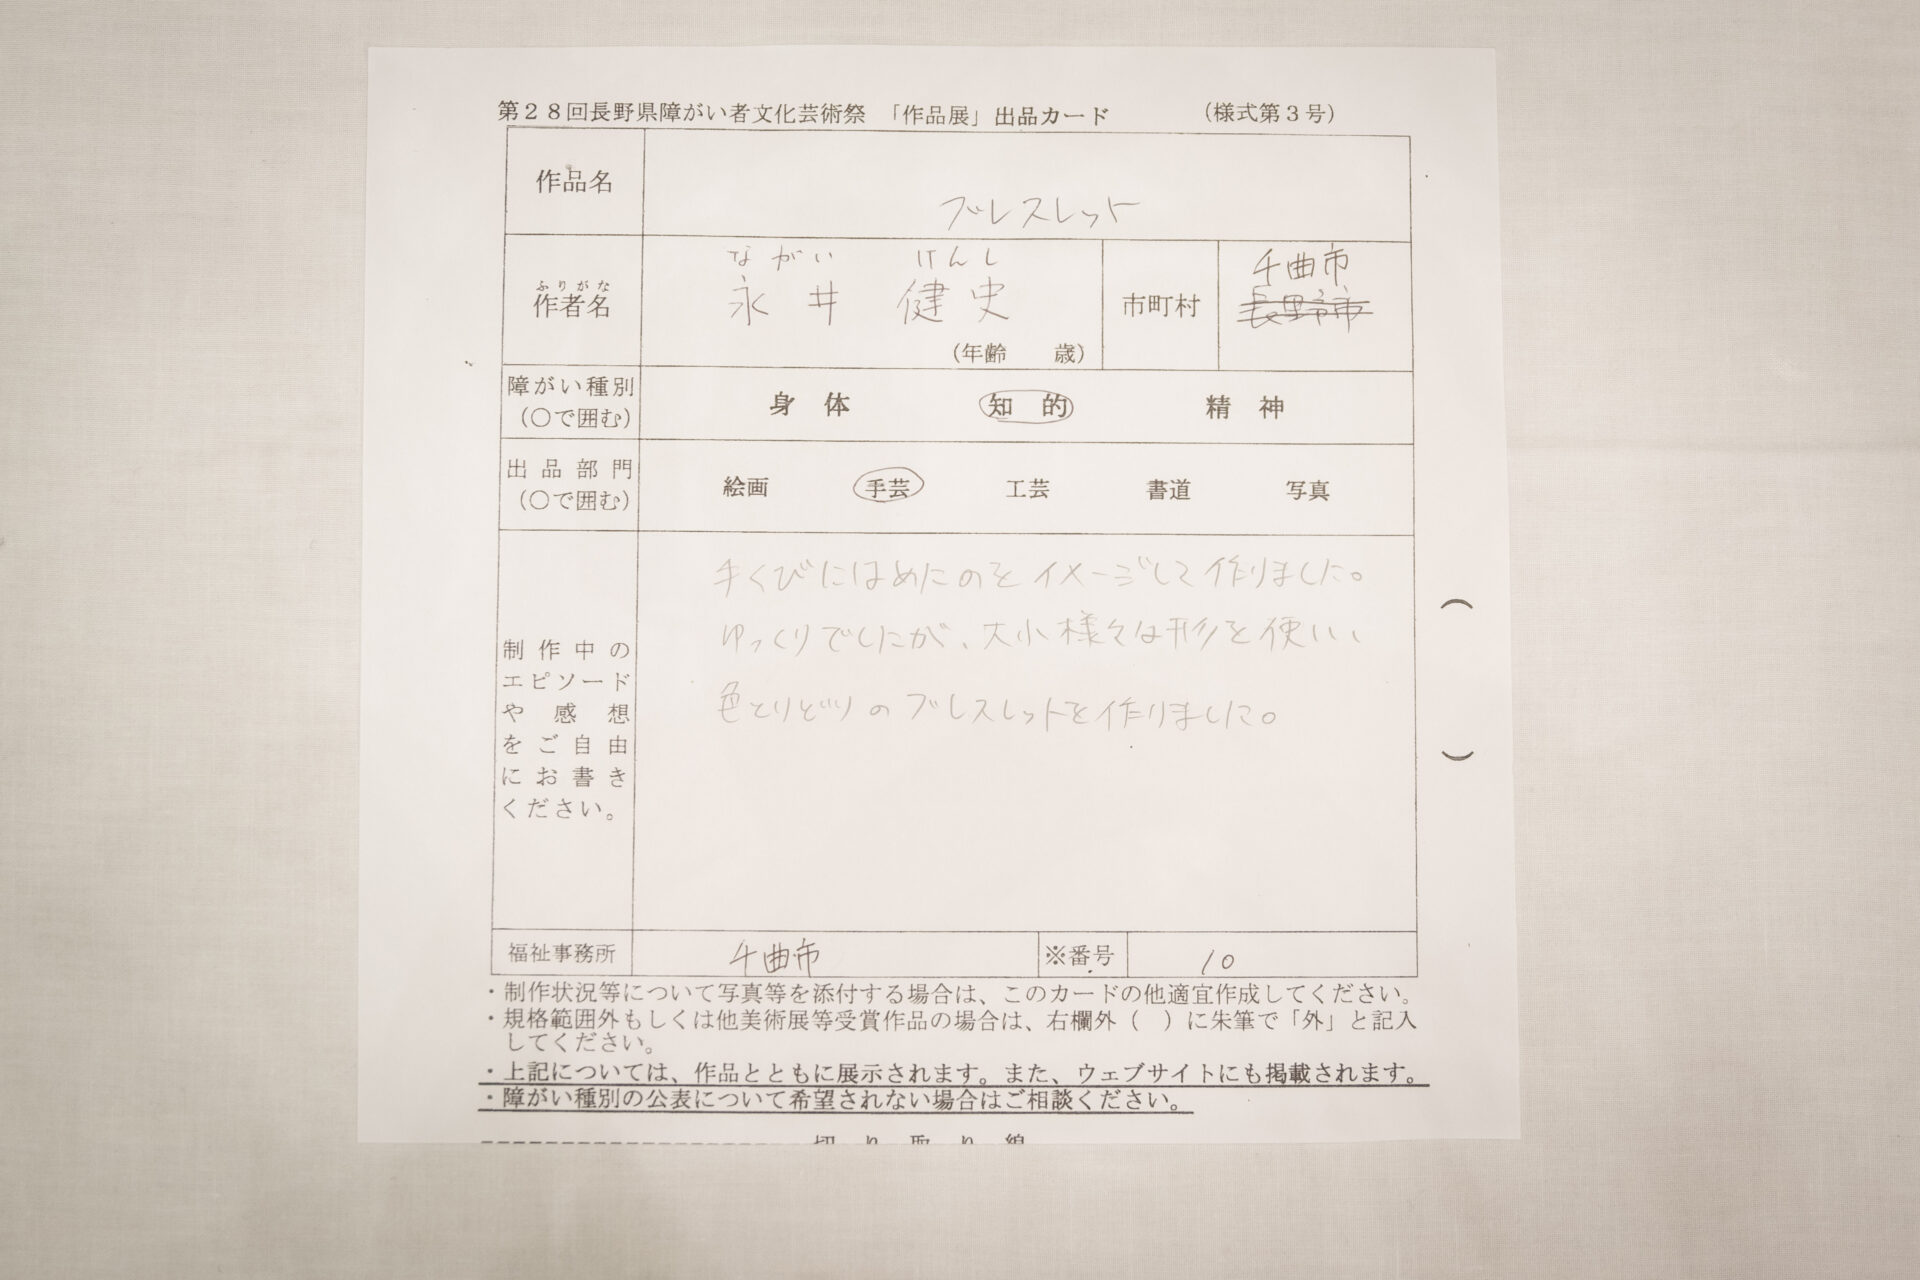 第28回長野県障がい者文化芸術祭 「作品展」出品カード (様式第3号)
作品名
ブレスレット
ふりがな
作者名
ながい けんし
永井 健史
(年齢 歳)
市町村
千曲市
長野市
障がい種別
(○で囲む)
身 体 知 的 精 神
出品部門
(○で囲む)
絵画 手芸 工芸 書道 写真
制作中の
エピソード
や感想
をご自由
にお書き
ください。
手くびにはめたのをイメージして作りました。
ゆっくりでしたが、大小様々な形を使い、
色とりどりのブレスレットを作りました。
( )
福祉事務所
千曲市
※番号
10
・制作状況等について写真等を添付する場合は、このカードの他適宜作成してください。
・規格範囲外もしくは他美術展等受賞作品の場合は、右欄外( )に朱筆で「外」と記入
してください。
・上記については、作品とともに展示されます。また、ウェブサイトにも掲載されます。
・障がい種別の公表について希望されない場合はご相談ください。
切り取り線